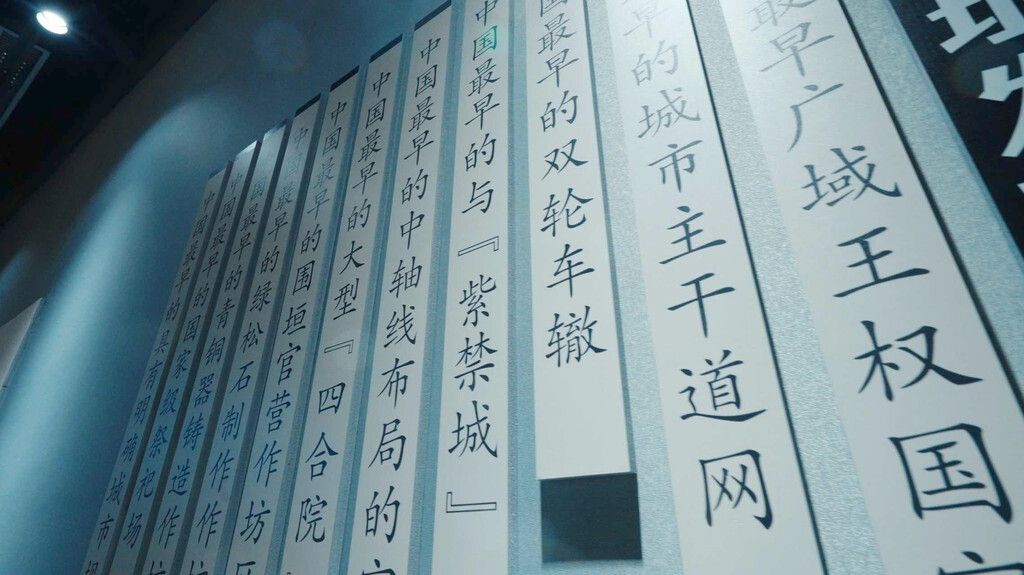 最早广域王权国
最早的城市主干道网
国最早的双轮车辙
中国最早的与『紫禁城』
中国最早的中轴线布局的
中国最早的大型『四合院
中国最早的围垣官营作坊
国最早的绿松石制作作
中国最早的青铜器铸造作
中国最早的国家级祭祀场
中国最早的具有明确城市